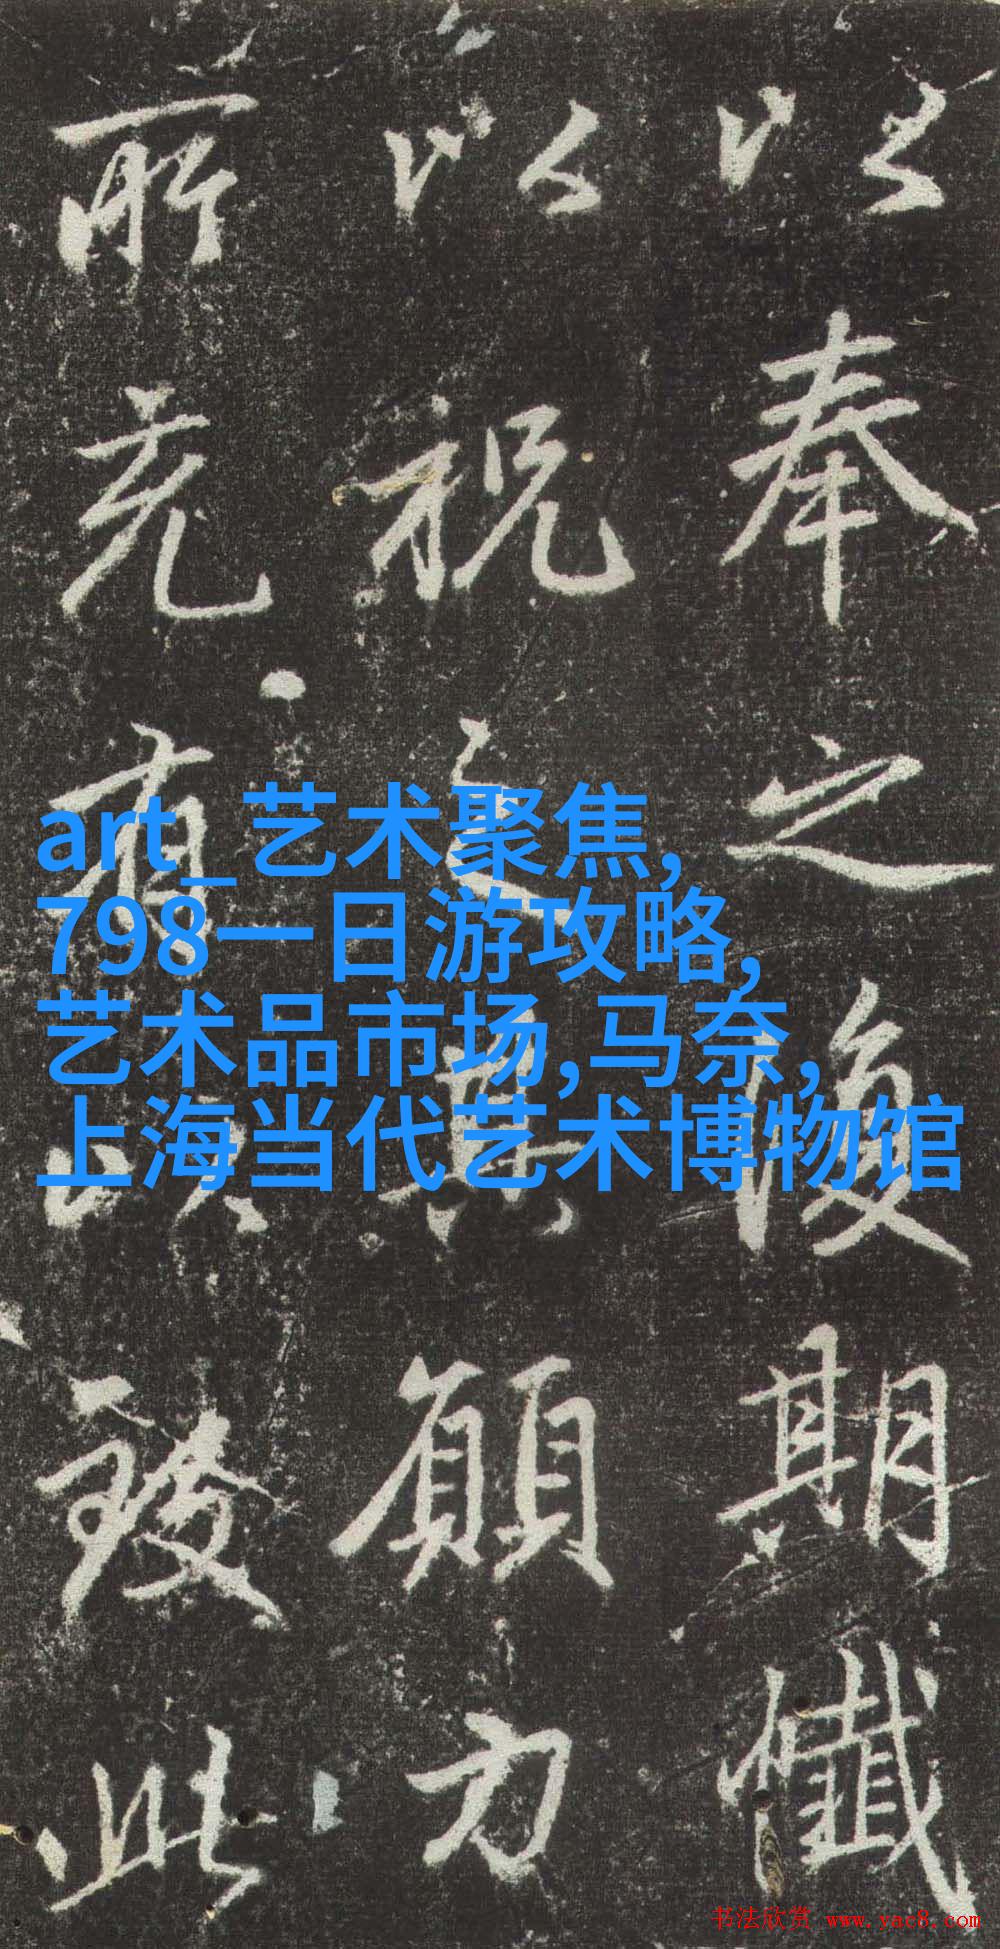 以奉之後期懺
以祝願力
所充有以致此
art_艺术聚焦,
798一日游攻略,
艺术品市场,马奈,
上海当代艺术博物馆
书法欣赏 www.yac8.com